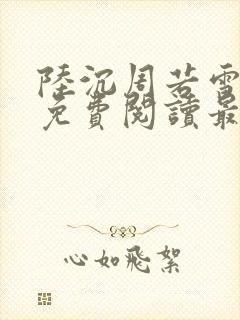 陸沉周若雪
免費閱讀最
心如飛絮